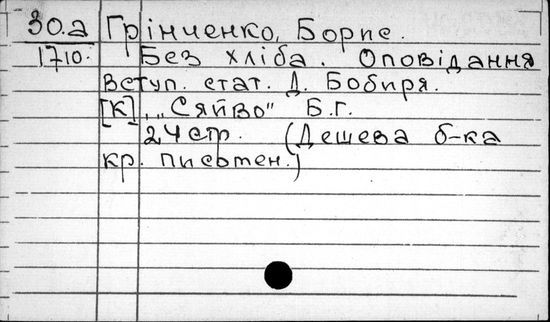 30.а Грінченко, Борис.
1710. Без хліба. Оповідання
Вступ. стат. Д. Бобиря.
[К], „Сяйво" Б.Г.
24 стр. (Дешева б-ка
кр. письмен.)